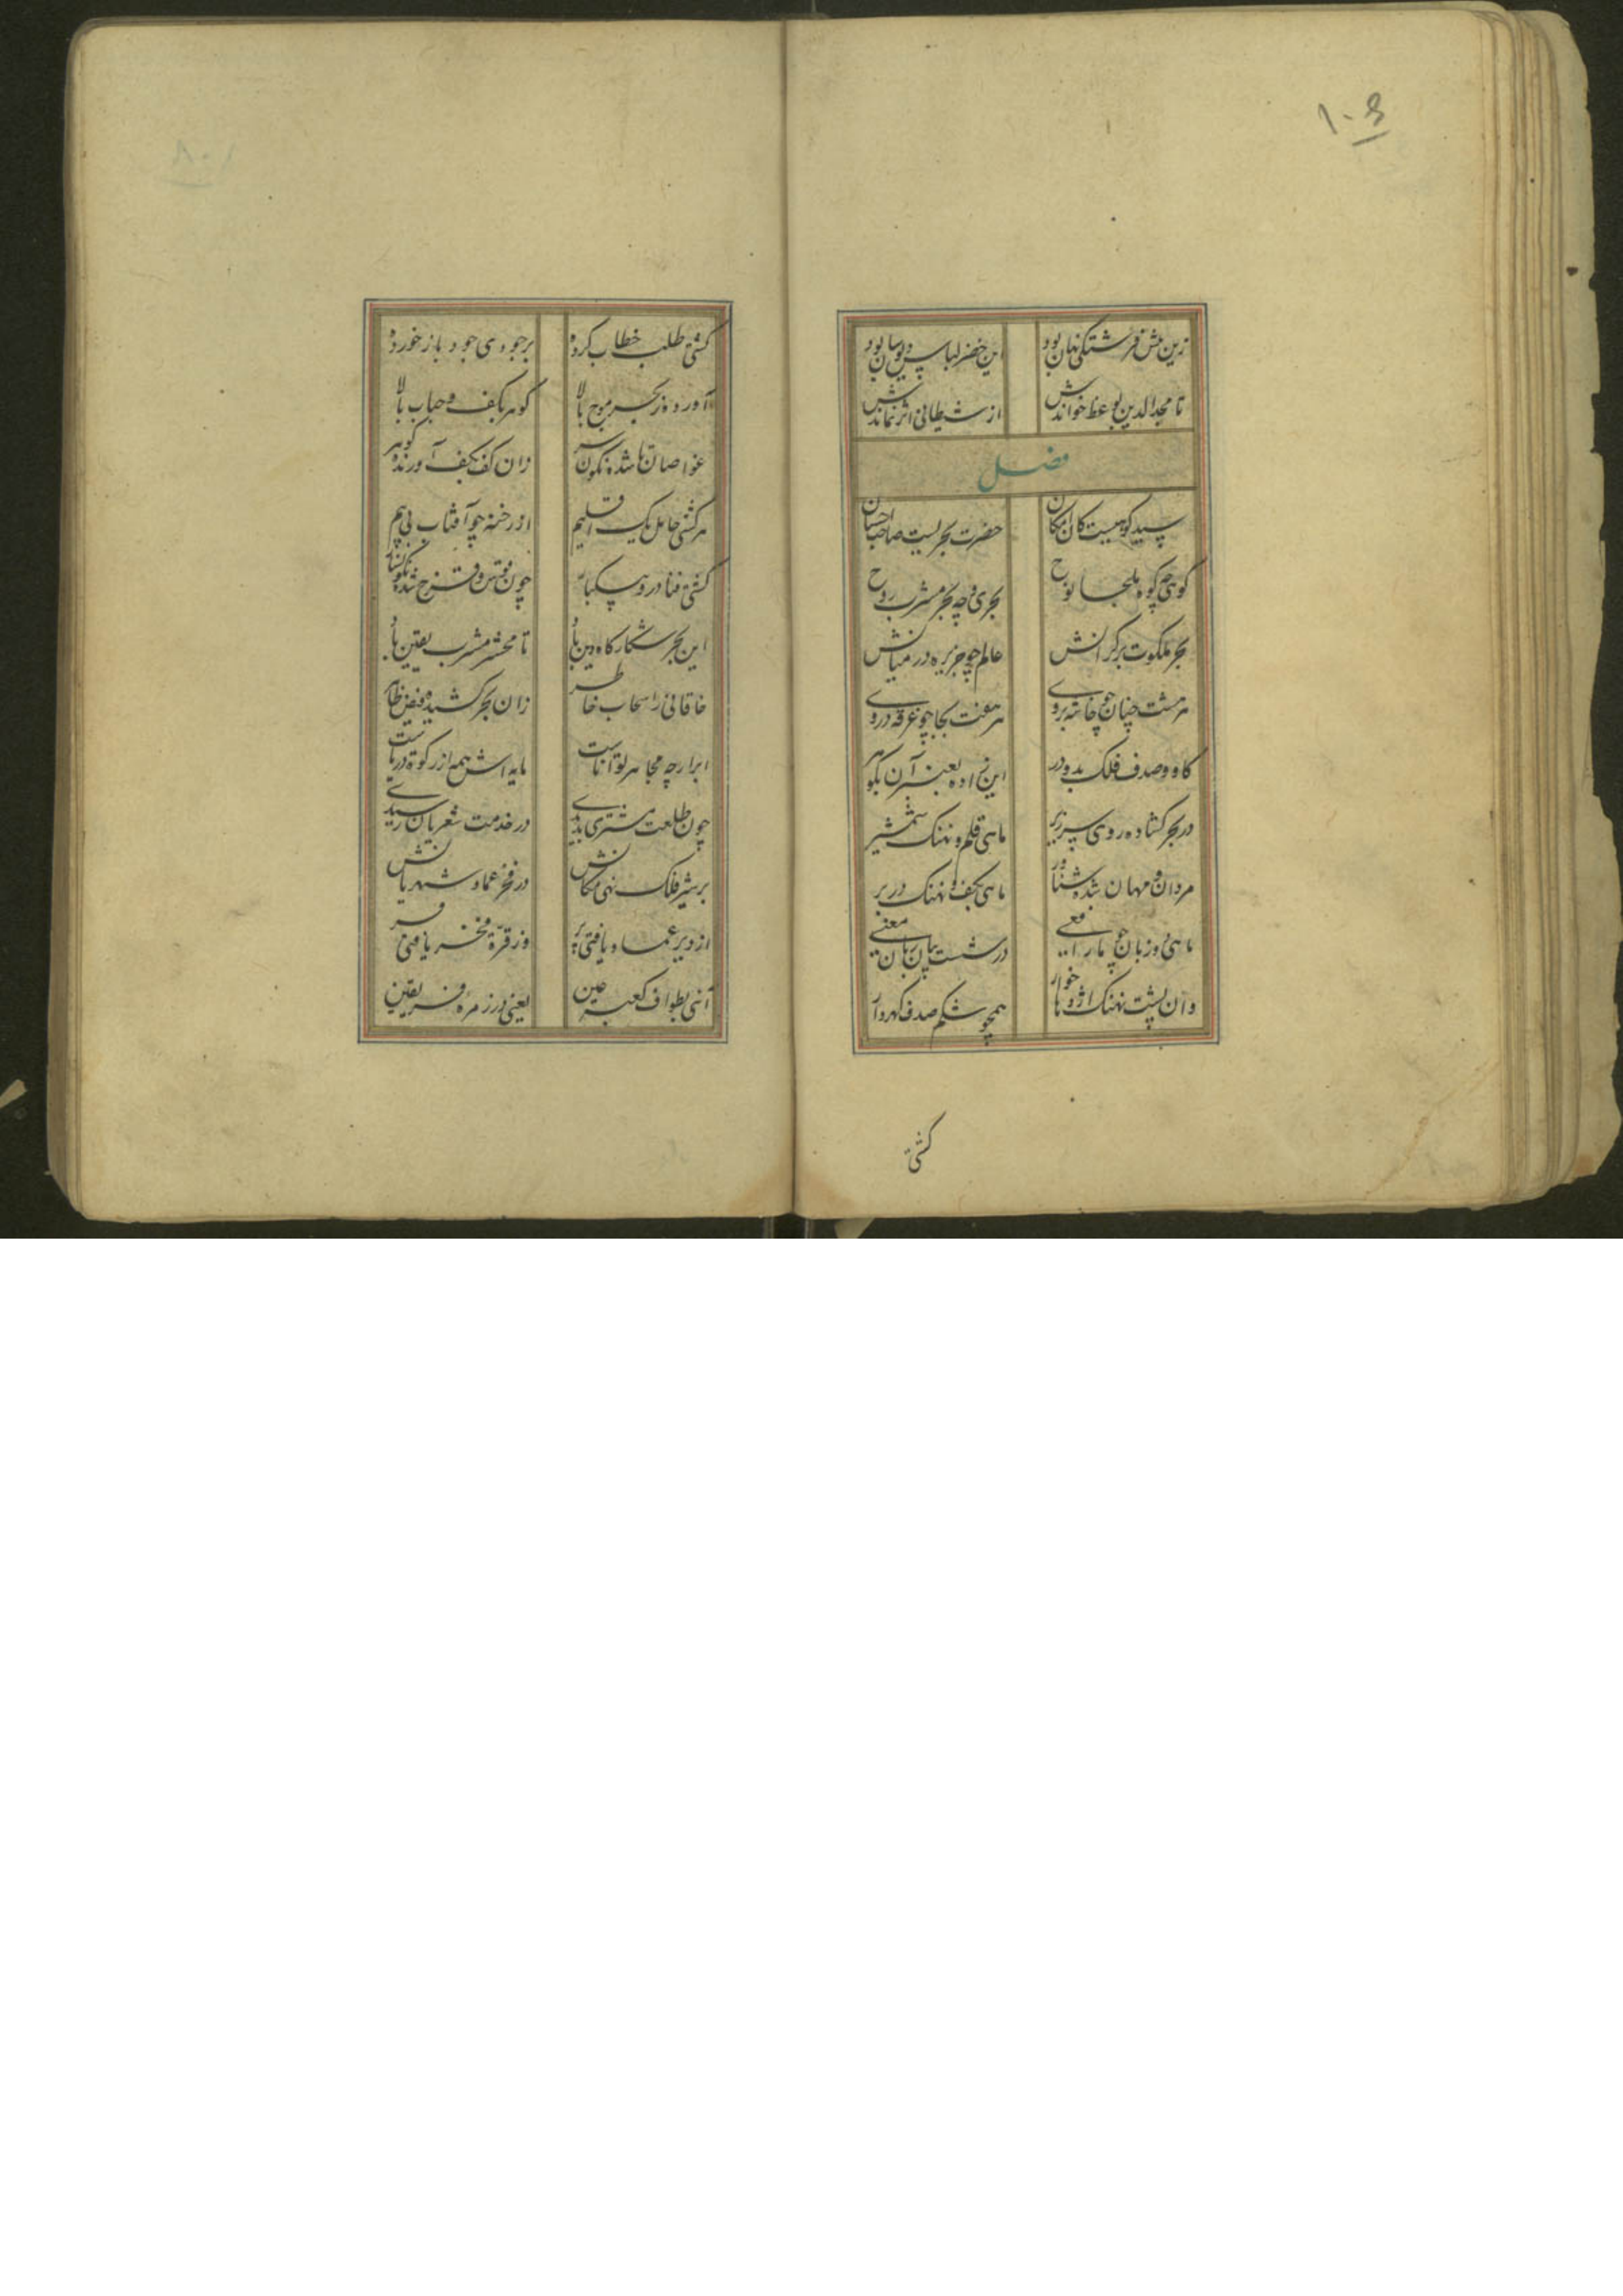 ۱۰۶
زین پیش فرشتگی نهان بود این خضر لباس دیوسان بود
تا مجدالدین بوعظ خواندش از شیطانی اثر نماندش
فصل
سید کوهیست کان مکان حضرت بحریست صاحب احسان
کوهی چه کوه ملجا نوح بحری و چه بحر مشرب روح
بحر ملکوت بر کرانش عالم چو جزیره در میانش
هر هشت جنان چو خانه بروی هر هفت بجا چو غرقه در وی
کاو و صدف فلک بدو در این زاده عنبر آن گوهر
در بحر گشاده روی سر زیر ماهی قلم و نهنگ شمشیر
مردان و مهان شده شناور ماهی بکف و نهنگ در بر
ماهی دو زبان چو مار افعی در شست بیان زبان معنی
وان پشت نهنگ اژدها خوار همچو شکم صدف گهردار
کشتی
کشتی طلب خطاب کرده بر جودی جود باز خورده
آورده ز بحر موج بالا گوهر بکف و حباب بالا
غواصانها شده نگون سر زان کف بکف آورنده گوهر
هر کشتی حامل یک اقلیم از رخنه چو آفتاب بی بیم
کشتی فنا درو سبکبار چون قوس و قزح شده نگونسار
این بحر شکارگاه دین باد تا محشر مشرب یقین باد
خاقانی را سحاب خاطر زان بحر کشیده فیض ظاهر
ابر ارچه مجاهر تواناست مایه اش همه از زکوة دریاست
چون طلعت مشتری بدیدی در خدمت شعریان رسیدی
بر شیر فلک نهی مکانش در فخر عماد شهریانش
از دیر عماد یافتی بر وز قرة مفخر یافتی فر
آنی بطواف کعبه عین یعنی در زمره فریقین